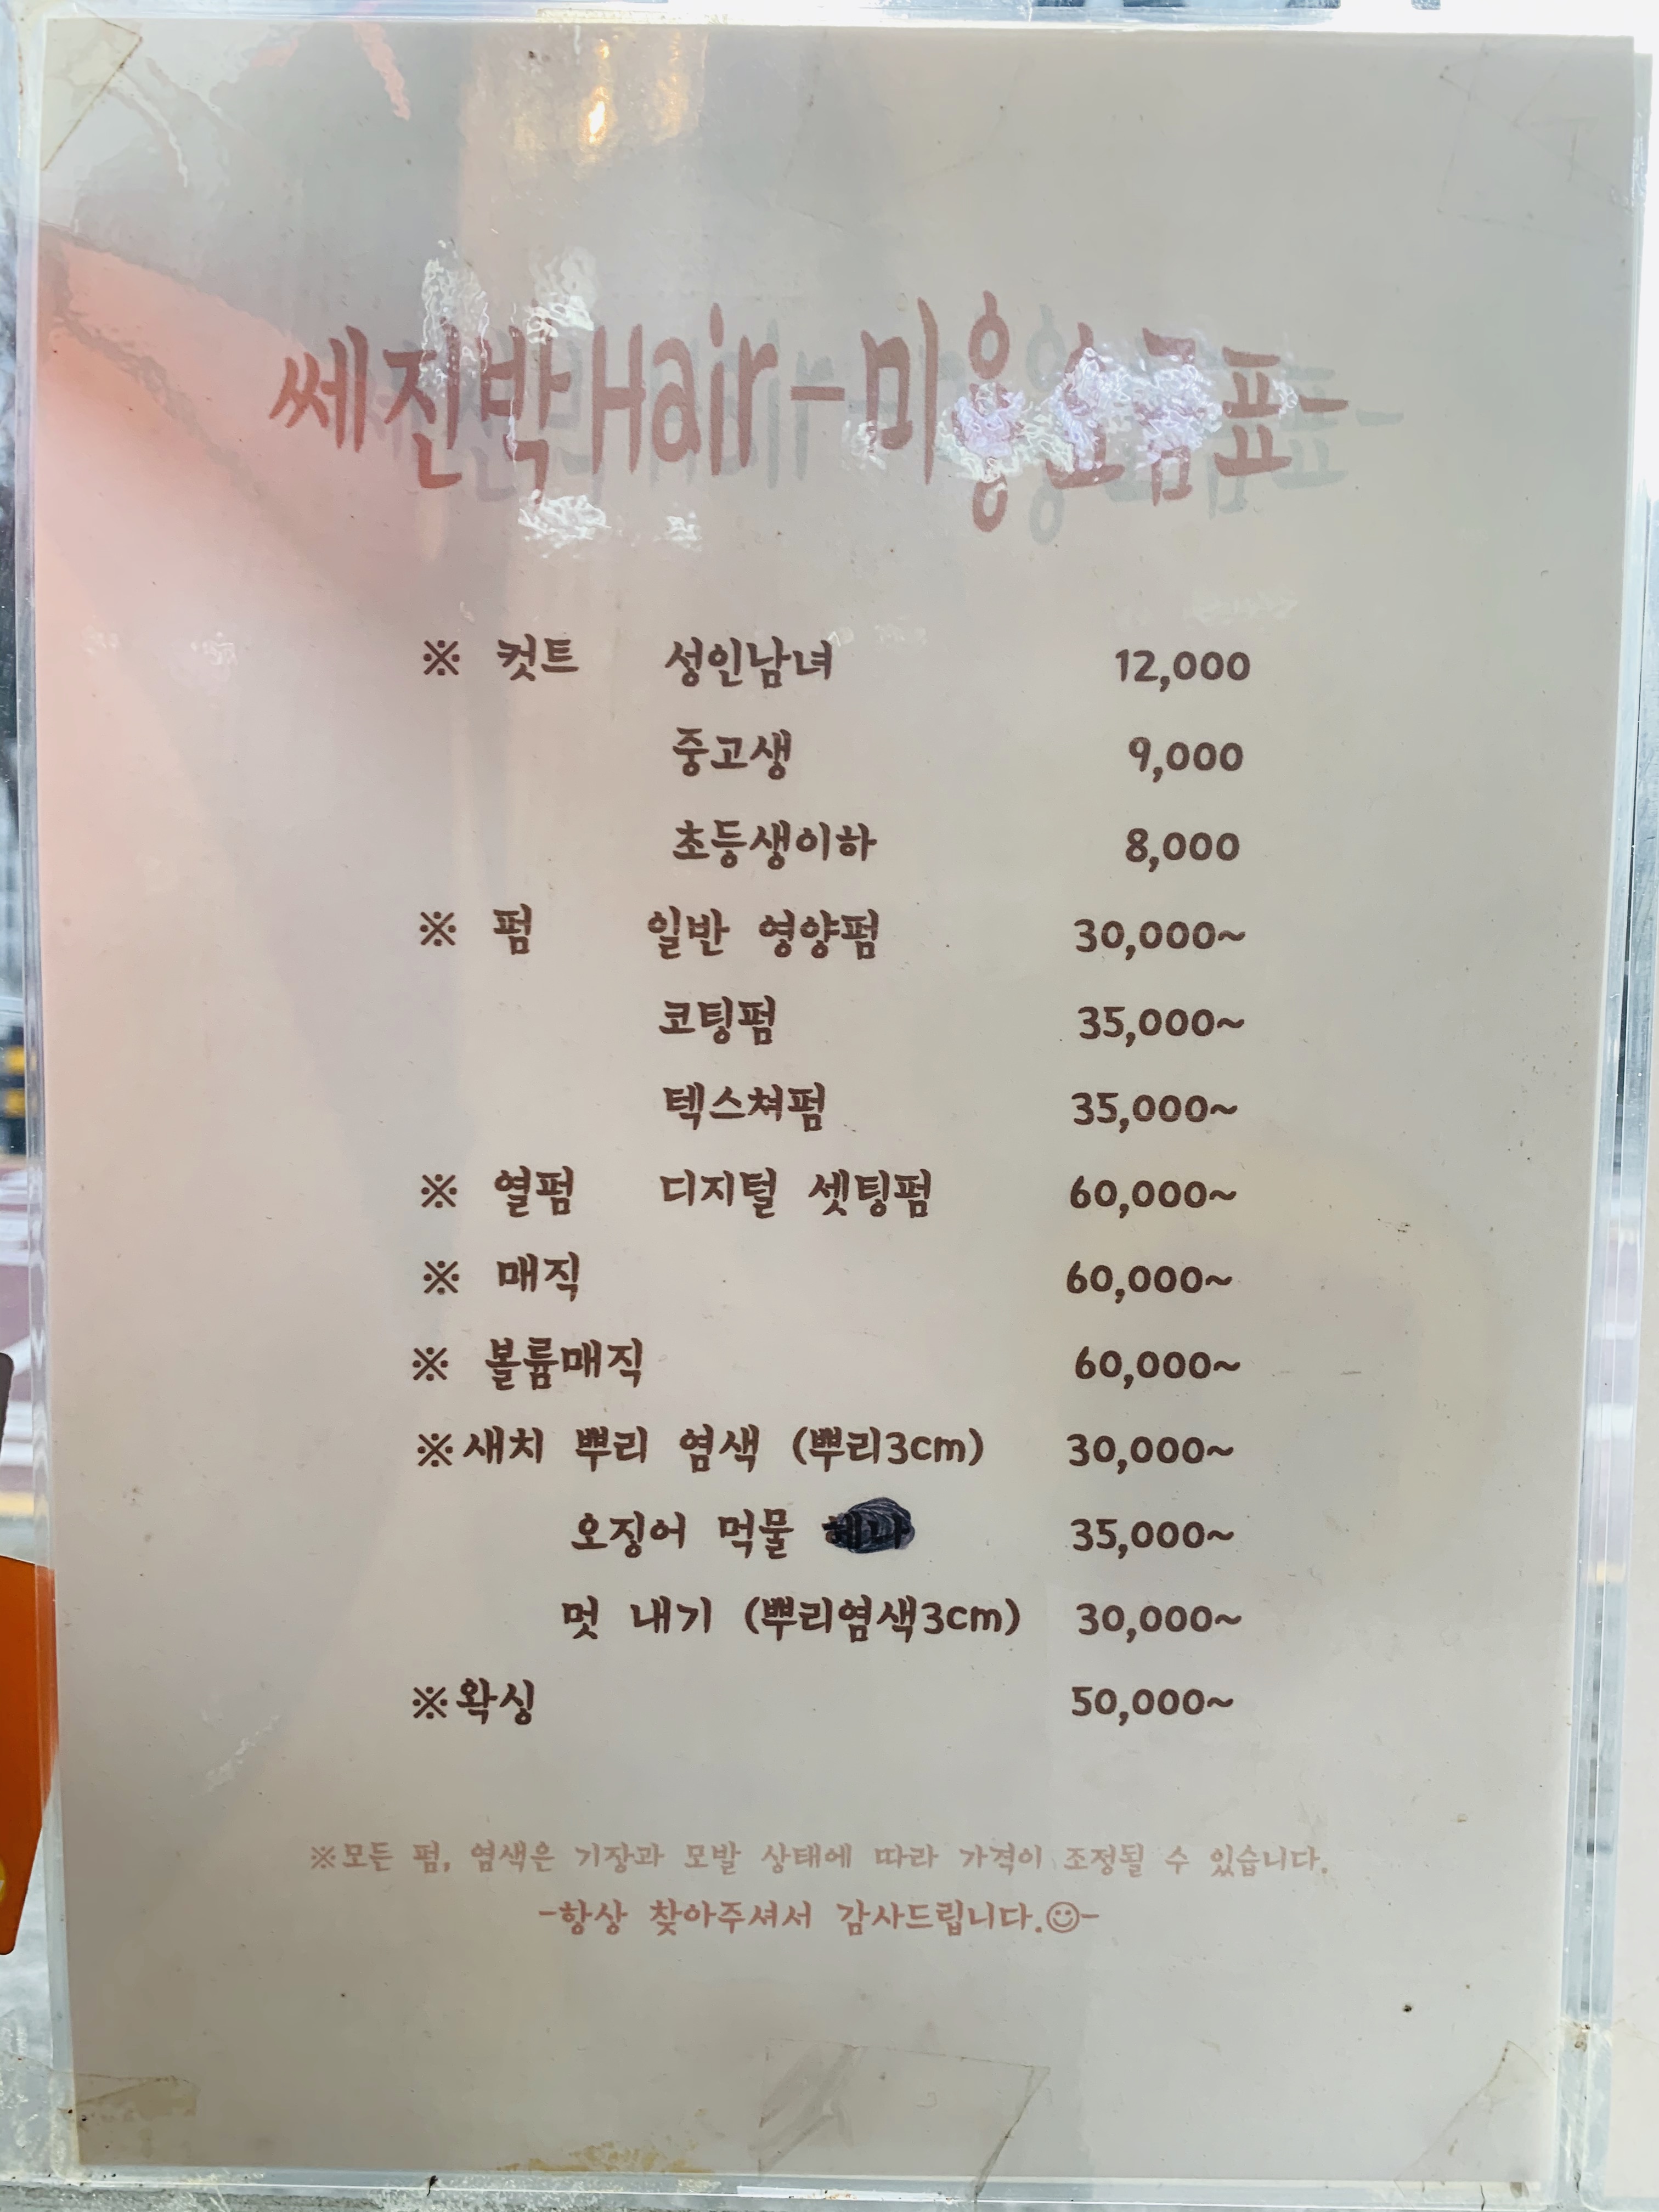 쎄진박Hair-미용요금표-
※ 컷트 성인남녀 12,000
중고생 9,000
초등생이하 8,000
※ 펌 일반 영양펌 30,000~
코팅펌 35,000~
텍스쳐펌 35,000~
※ 열펌 디지털 셋팅펌 60,000~
※ 매직 60,000~
※ 볼륨매직 60,000~
※새치 뿌리 염색 (뿌리3cm) 30,000~
오징어 먹물 35,000~
멋 내기 (뿌리염색3cm) 30,000~
※왁싱 50,000~
※모든 펌, 염색은 기장과 모발 상태에 따라 가격이 조정될 수 있습니다.
-항상 찾아주셔서 감사드립니다.☺-